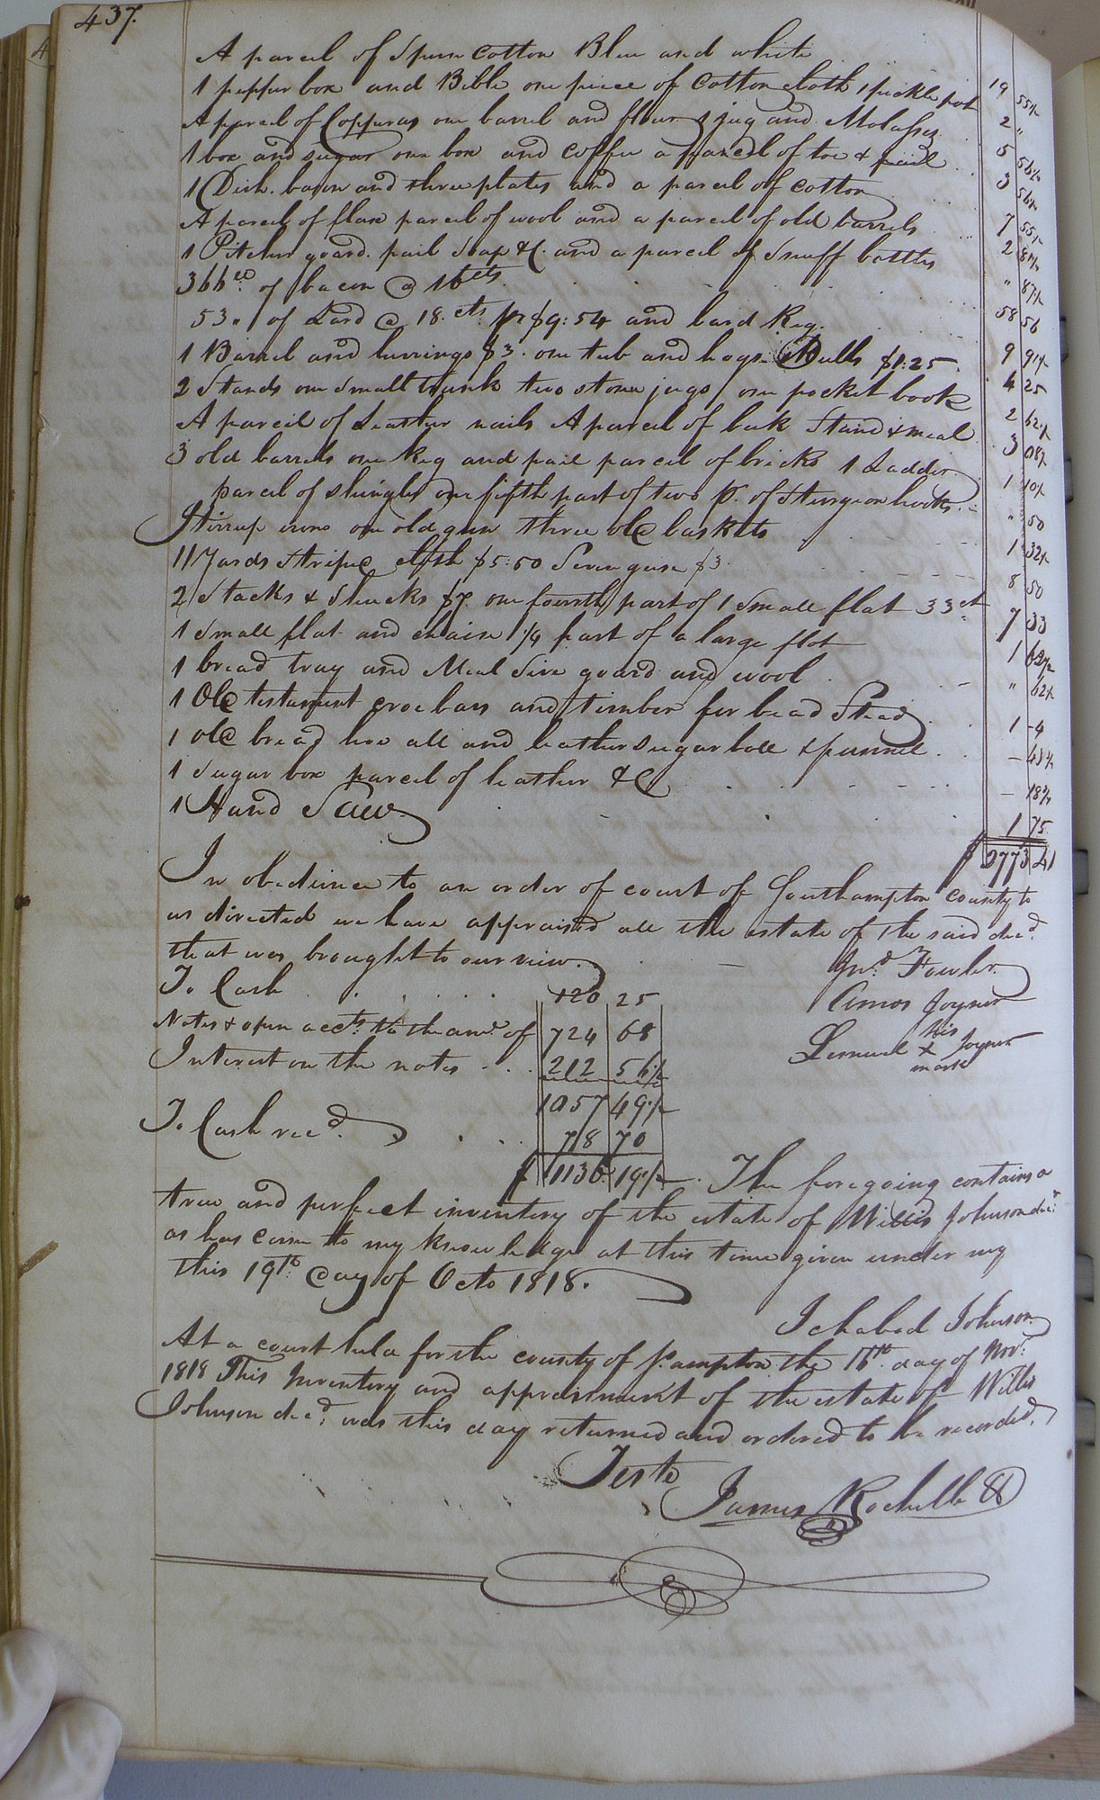 437.
A parcel of Spun Cotton Blue and white
1 pepper box and Bible one piece of Cotton cloth 1 pickle pot 19 55½
A parcel of Copperas one barrel and flour 1 jug and Molasses 2 "
1 box and sugar one box and coffee a parcel of toe & pail 5 56½
1 Dish bason and three plates and a parcel of cotton 3 56½
A parcel of flax parcel of wool and a parcel of old barrels 7 55½
1 Pitcher goard pail Soap &C. and a parcel of Snuff bottles 2 81½
366 of bacon @ 16 cts " 87½
53 " of Lard @ 18. cts pr $9:54 and lard Keg. 58 56
1 Barrel and herrings $3. one tub and hogs $1:25. 9 91½
2 Stands one Small trunk two stone jugs one pocket book 4 25
A parcel of Leather nails A parcel of Stand & meal 2 62½
3 old barrels one Keg and pail parcel of bricks 1 Ladder 3 08½
parcel of shingles one fifth part of two pr. of Sturgeon hooks 1 10½
Stirrup irons one old gun three old baskets " 50
11 Yards Stripe cloth $5:50 Seven geese $3 1 32½
2 Stacks & Shucks $7. one fourth part of 1 Small flat 33 ct 8 50
1 Small flat and chain ¼ part of a large flat 7 33
1 bread tray and Meal Sive goard and wool 1 62½
1 Old testament crocbars and timber for bead Stead " 62½
1 old bread hoe all and leather sugar boll & funnel 1 4
1 Sugar box parcel of leather &C - 43¾
1 Hand Saw - 18¾
1 75
$ 2773 41
In obedience to an order of court of Southampton County to
us directed we have appraised all the estate of the said decd.
that was brought to our view.
Jnd. Fowler
To Cash 120 25
Amos Joyner
Notes & open accts. to the amt. of 724 68
Lemuel his X mark Joyner
Interest on the notes 212 56½
1057 49½
To Cash recd. 78 70
$ 1136 19½ The foregoing contains a
true and perfect inventory of the estate of Willis Johnson decd.
as has come to my knowledge at this time given under my
this 19th day of Octo 1818.
Ichabod Johnson
At a court held for the county of S.ampton the 16th day of Novr.
1818 This Inventory and appraisment of the estate of Willis
Johnson decd. was this day returned and ordered to be recorded.
Teste
James Rochelle